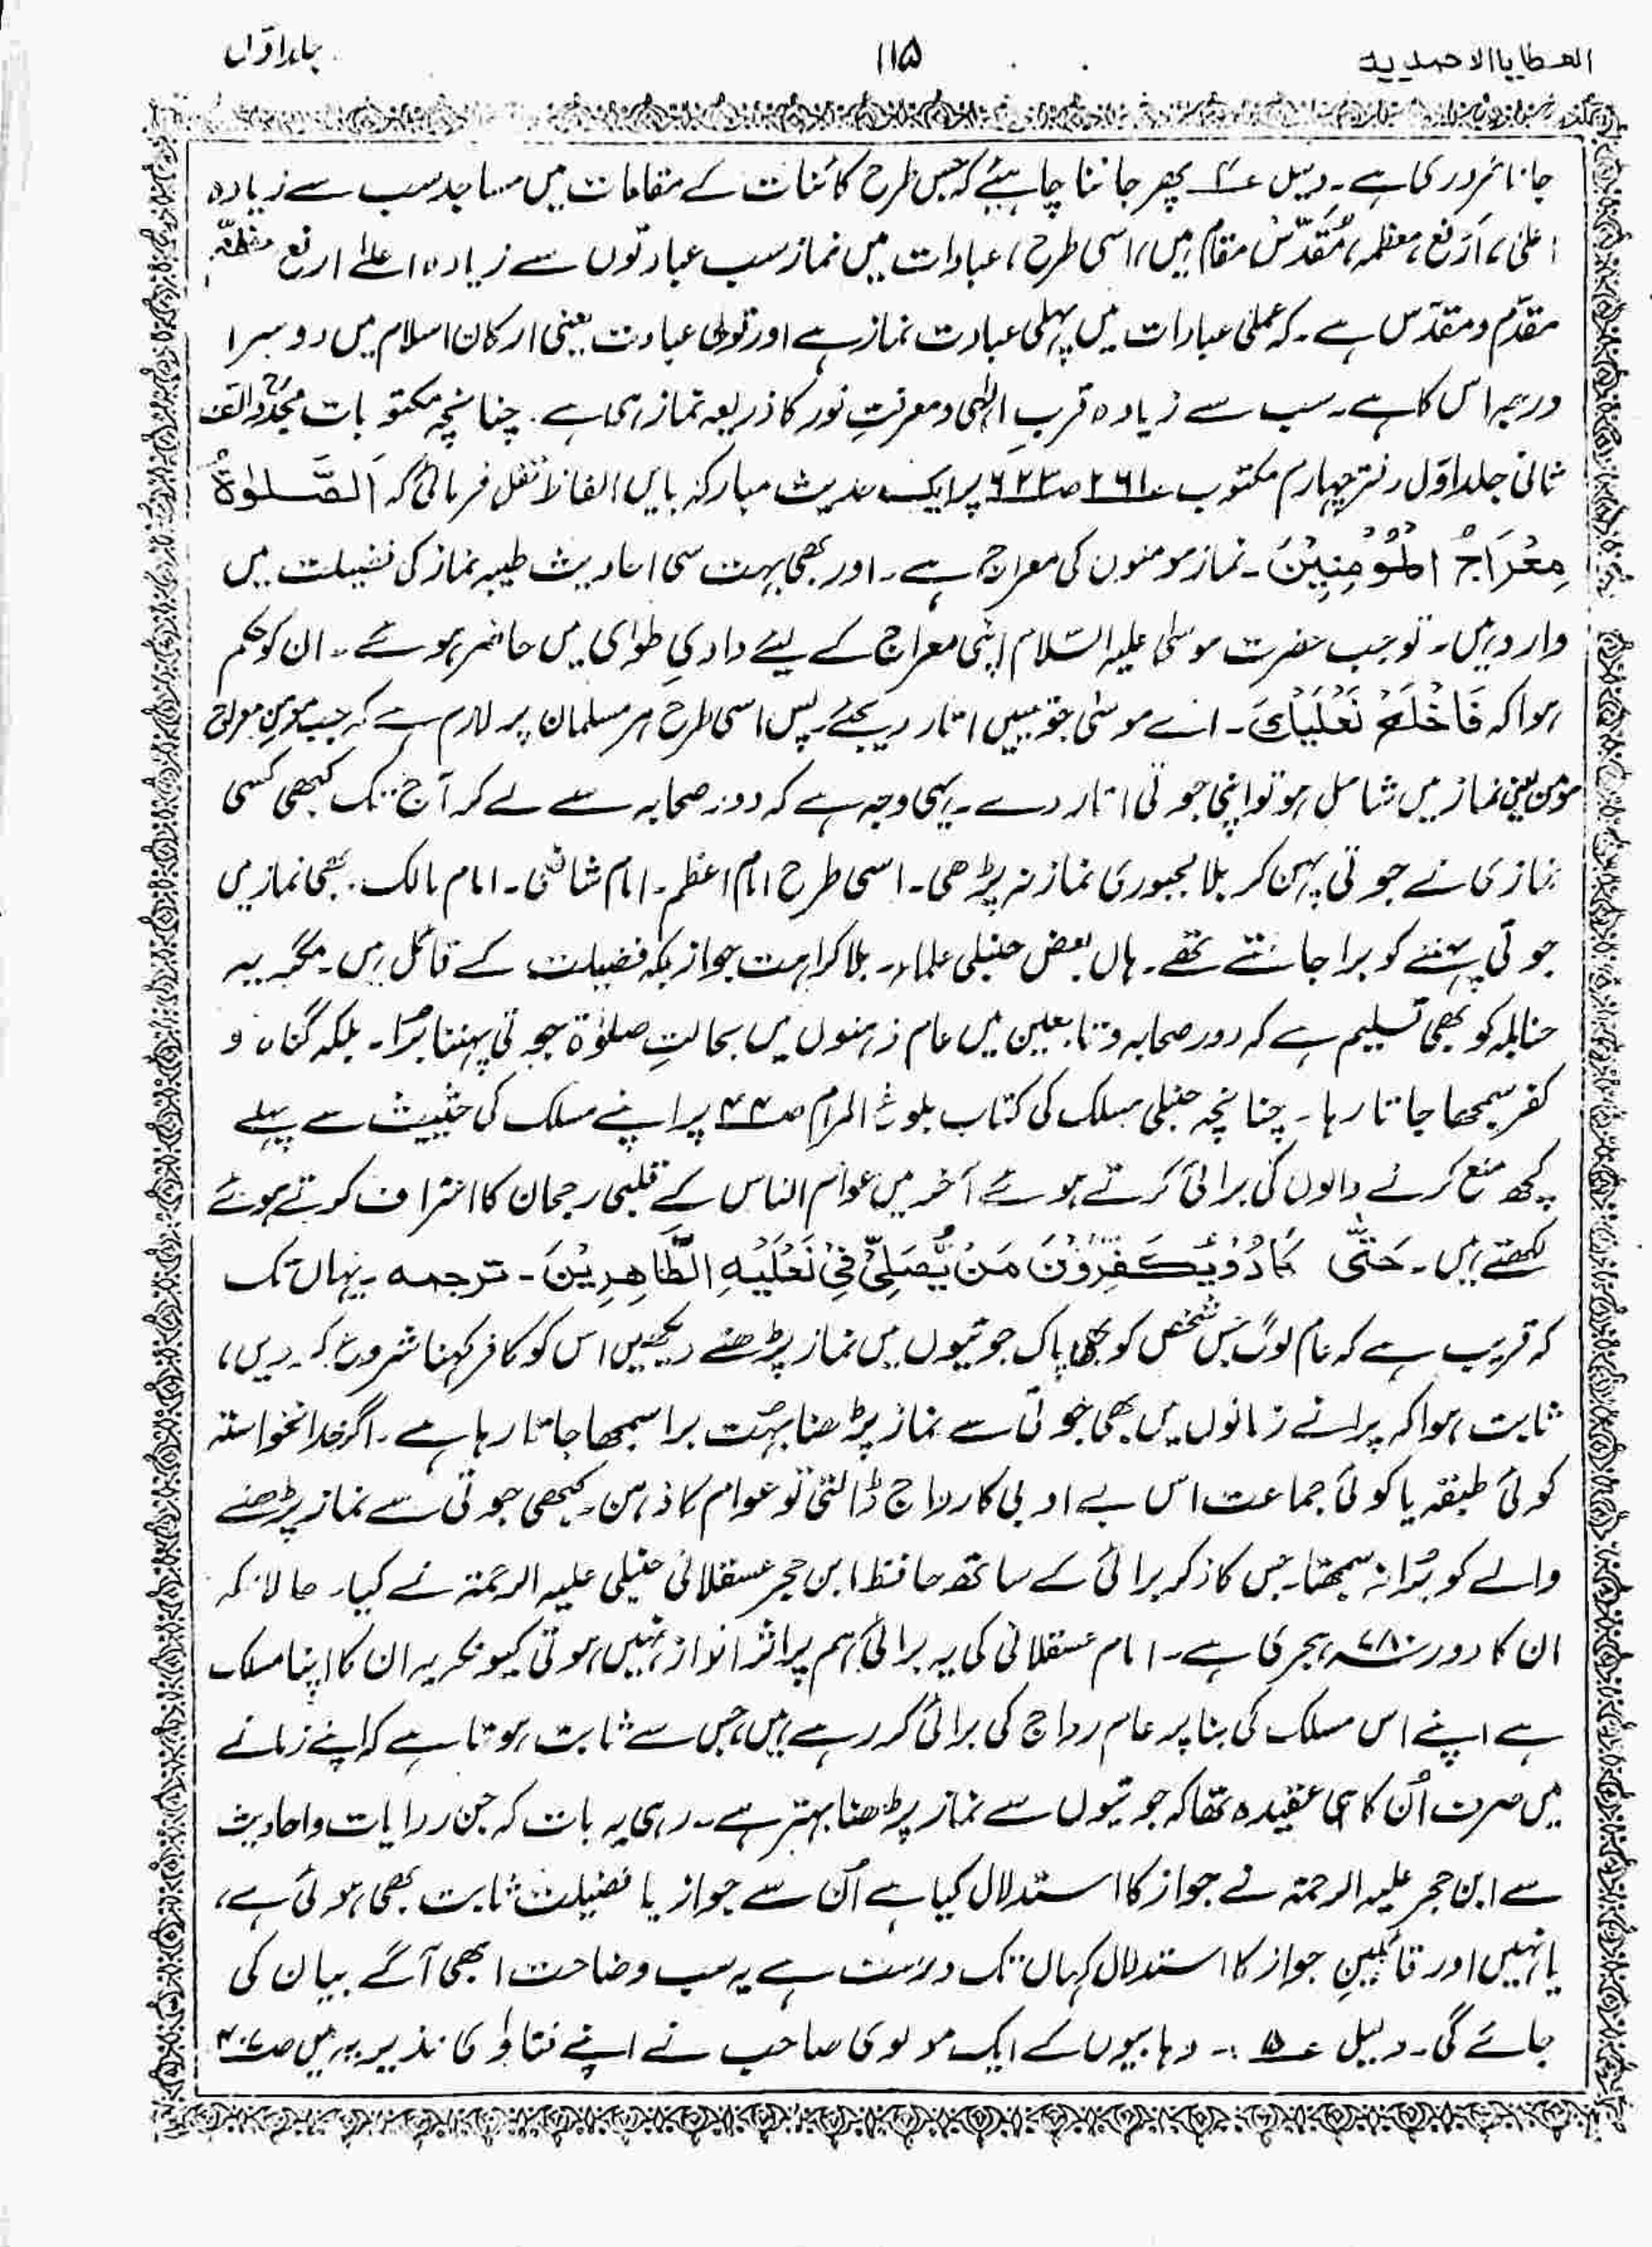 العطایا الاحمدیہ ۱۱۵ جلد اوّل
جانا ضروری ہے۔ دلیل ع۴ پھر جاننا چاہیئے کہ جس طرح کائنات کے مقامات میں مساجد سب سے زیادہ
اعلیٰ، اَرْفع، معظمہ، مُقَدَّس مقام ہیں، اسی طرح، عبادات میں نماز سب عبادتوں سے زیادہ اعلےٰ ارفع معظمّ
مقدّم و مقدّس ہے۔ کہ عملی عبادات میں پہلی عبادت نماز ہے اور قولی عبادت یعنی ارکان اسلام میں دوسرا
درجہ اس کا ہے۔ سب سے زیادہ قربِ الٰہی و معرفتِ نور کا ذریعہ نماز ہی ہے۔ چنانچہ مکتوبات مجدّد الف
ثانی جلد اوّل دفتر چہارم مکتوب ع۲۶۱ ص۶۲۳ پر ایک حدیث مبارکہ بایں الفاظ نقل فرمائی کہ اَلصَّلوٰۃُ
مِعْرَاجُ الْمُوْمِنِیْنَ۔ نماز مومنوں کی معراج ہے۔ اور بھی بہت سی احادیث طیبہ نماز کی فضیلت میں
وارد ہیں۔ تو جب حضرت موسیٰ علیہ السّلام اپنی معراج کے لیئے وادیِ طوای میں حاضر ہوئے۔ ان کو حکم
ہوا کہ فَاخْلَعْ نَعْلَیْكَ۔ اے موسٰی جوتییں اتار دیجئے، پس اسی طرح ہر مسلمان پر لازم ہے کہ جب مومن معراج
مومن یعنی نماز میں شامل ہو تو اپنی جوتی اتار دے۔ یہی وجہ ہے کہ دور صحابہ سے لے کر آج تک کبھی کسی
نمازی نے جوتی پہن کر بلا مجبوری نماز نہ پڑھی۔ اسی طرح امام اعظم۔ امام شافعی۔ امام مالک۔ بھی نماز میں
جوتی پہننے کو برا جانتے تھے۔ ہاں بعض حنبلی علماء۔ بلا کراہت جواز بلکہ فضیلت کے قائل ہیں۔ مگر یہ
حنابلہ کو بھی تسلیم ہے کہ دور صحابہ و تابعین میں عام ذہنوں میں بحالتِ صلوٰۃ جوتی پہننا بُرا۔ بلکہ گناہ و
کفر سمجھا جاتا رہا۔ چنانچہ حنبلی مسلک کی کتاب بلوغ المرام ص۴۴ پر اپنے مسلک کی حثییث سے پہلے
کچھ منع کرنے والوں کی برائی کرتے ہوئے آخر میں عوام الناس کے قلبی رجحان کا اعتراف کرتے ہوئے
لکھتے ہیں۔ حَتّٰی کَادُوْ یُکَفِّرُوْنَ مَنْ یُّصَلِّیْ فِیْ نَعْلَیْہِ الطَّاھِرِیْنَ۔ ترجمہ۔ یہاں تک
کہ قریب ہے کہ عام لوگ جس شخص کو بھی پاک جوتیوں میں نماز پڑھتے دیکھیں اس کو کافر کہنا شروع کر دیں،
ثابت ہوا کہ پرانے زمانوں میں بھی جوتی سے نماز پڑھنا بہت برا سمجھا جاتا رہا ہے۔ اگر خدانخواستہ
کوئی طبقہ یا کوئی جماعت اس بے ادبی کا رواج ڈالتی تو عوام کا ذہن۔ کبھی جوتی سے نماز پڑھنے
والے کو بُرا نہ سمجھتا۔ جس کا ذکر برائی کے ساتھ حافظ ابن حجر عسقلانی حنبلی علیہ الرحمۃ نے کیا۔ حالانکہ
ان کا دور ۷۸۰ ہجری ہے۔ امام عسقلانی کی یہ برائی ہم پر اثر انداز نہیں ہوتی کیونکہ یہ ان کا اپنا مسلک
ہے اپنے اس مسلک کی بنا پر عام رواج کی برائی کر رہے ہیں، جس سے ثابت ہوتا ہے کہ اپنے زمانے
میں صرف اُن کا ہی عقیدہ تھا کہ جوتیوں سے نماز پڑھنا بہتر ہے۔ رہی یہ بات کہ جن روایات و احادیث
سے ابن حجر علیہ الرحمۃ نے جواز کا استدلال کیا ہے اُن سے جواز یا فضیلت ثابت بھی ہوئی ہے،
یا نہیں اور قائلینِ جواز کا استدلال کہاں تک درست ہے یہ سب وضاحت ابھی آگے بیان کی
جائے گی۔ دلیل ع۵:۔ وہابیوں کے ایک مولوی صاحب نے اپنے فتاویٰ نذیریہ میں